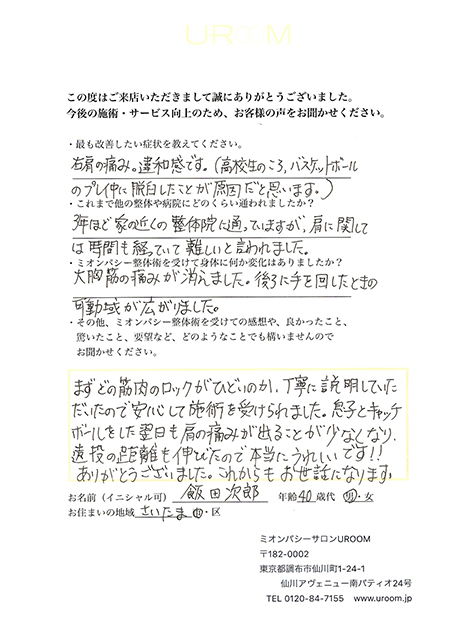 UROOM
この度はご来店いただきまして誠にありがとうございました。
今後の施術・サービス向上のため、お客様の声をお聞かせください。
・最も改善したい症状を教えてください。
右肩の痛み。違和感です。(高校生のころ、バスケットボール
のプレイ中に脱臼したことが原因だと思います。)
・これまで他の整体や病院にどのくらい通われましたか?
3年ほど家の近くの整体院に通っていますが、肩に関して
は時間も経っていて難しいと言われました。
・ミオンパシー整体術を受けて身体に何か変化はありましたか?
大胸筋の痛みが消えました。後ろに手を回したときの
可動域が広がりました。
・その他、ミオンパシー整体術を受けての感想や、良かったこと、
驚いたこと、要望など、どのようなことでも構いませんので
お聞かせください。
まずどの筋肉のロックがひどいのか、丁寧に説明していた
だいたので安心して施術を受けられました。息子とキャッチ
ボールをした翌日も肩の痛みが出ることが少なくなり、
遠投の距離も伸びたので本当にうれしいです!!
ありがとうございました。これからもお世話になります。
お名前(イニシャル可) 飯田次郎 年齢40歳代 男・女
お住まいの地域 さいたま市・区
ミオンパシーサロンUROOM
〒182-0002
東京都調布市仙川町1-24-1
仙川アヴェニュー南パティオ24号
TEL 0120-84-7155 www.uroom.jp